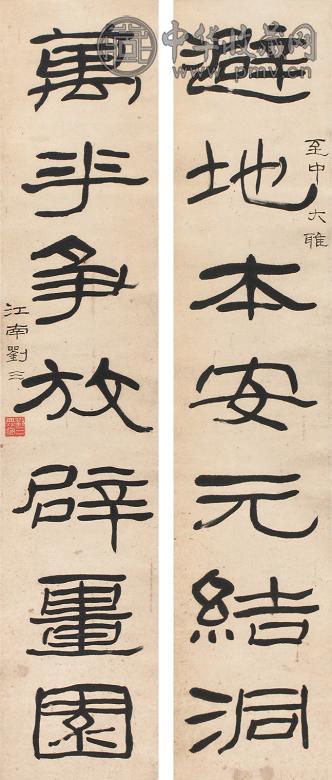 中华收藏网
www.pmv.cn
避地本安元結洞
至中大雅
萬爭放辟畺園
江南劉三